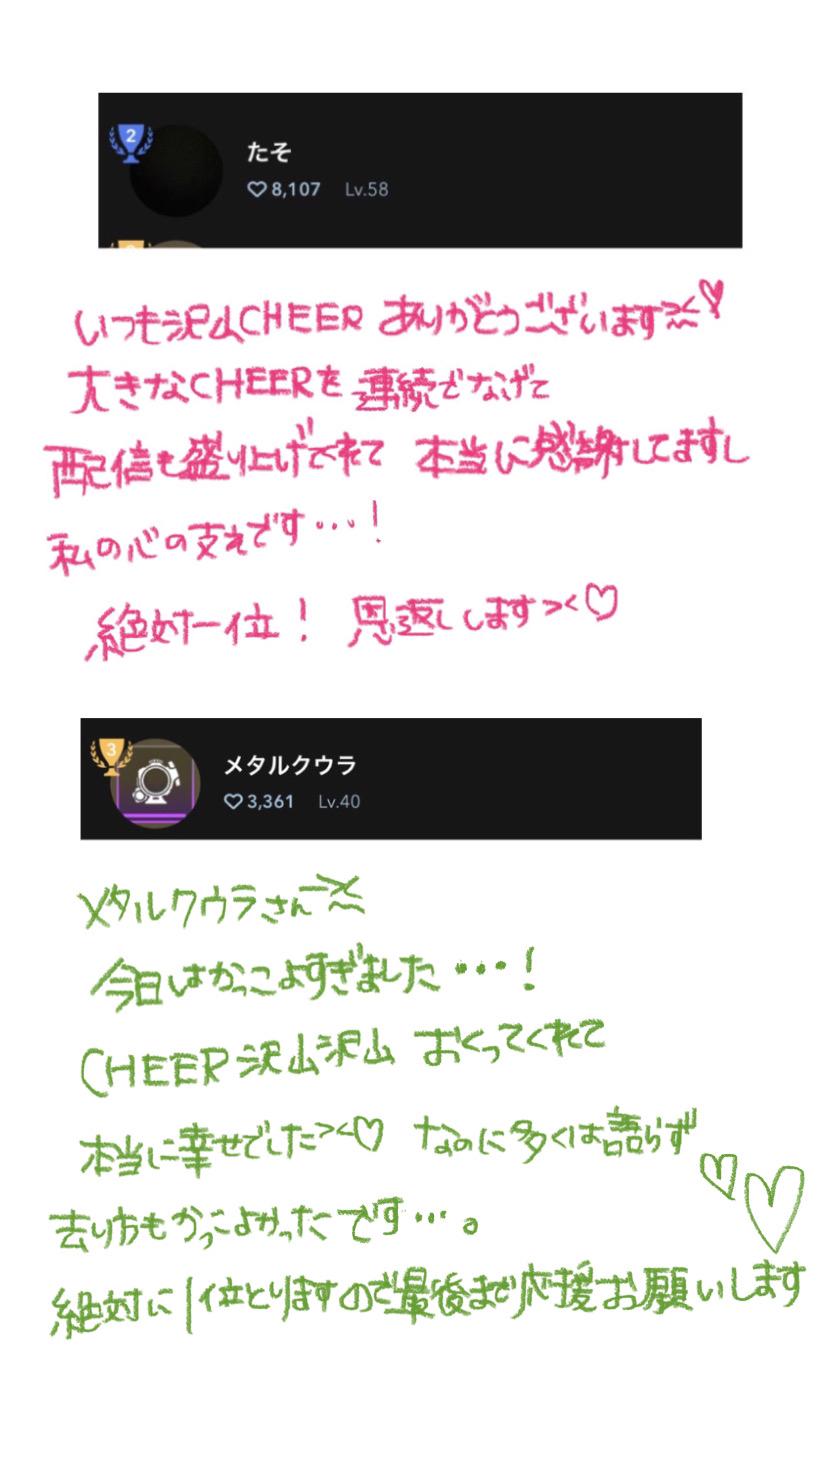 2
たそ
♡8,107 Lv.58
いつも沢山CHEER ありがとうございます><♡
大きなCHEERを連続でなげて
配信も盛り上げてくれて 本当に感謝してますし
私の心の支えです…！
絶対一位！ 恩返しします><♡
3
メタルクウラ
♡3,361 Lv.40
メタルクウラさん><
今日はかっこよすぎました…！
CHEER沢山沢山 おくってくれて
本当に幸せでした><♡ なのに多くは語らず
去り方もかっこよかったです…。
絶対に1位とりますので最後まで応援お願いします